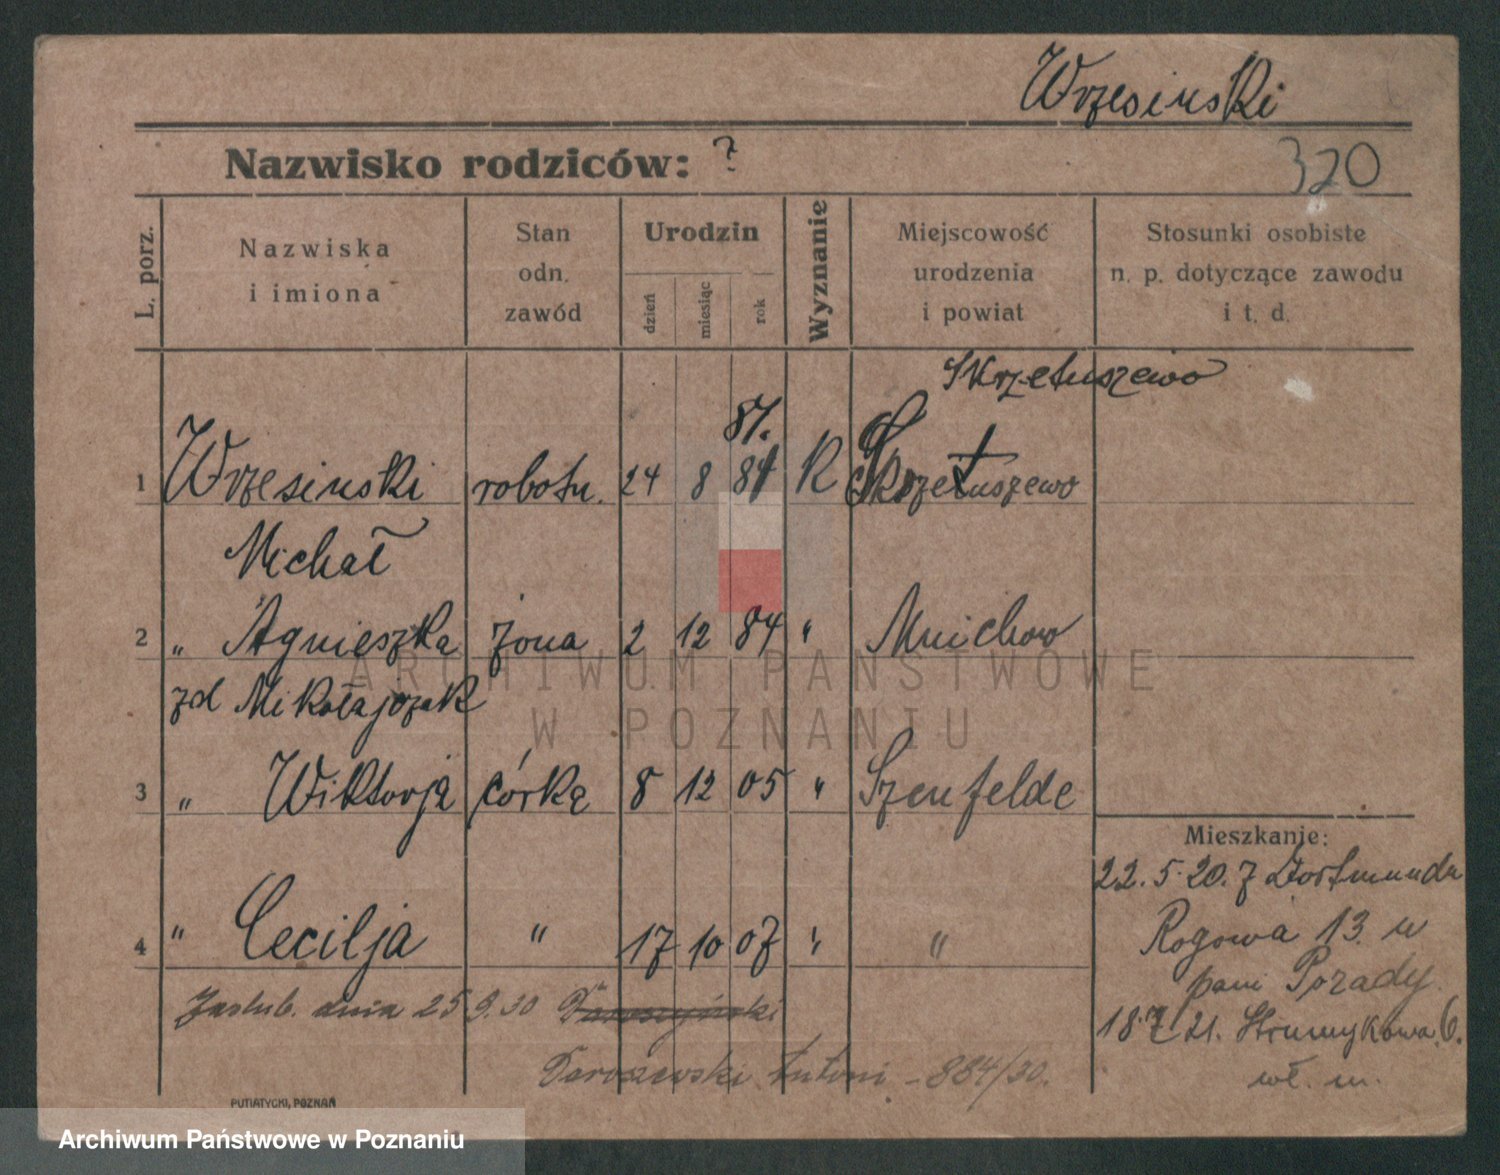 Wrzesinski
Nazwisko rodziców: ?
320
L. porz.
Nazwiska
i imiona
Stan
odn.
zawód
Urodzin
dzień
miesiąc
rok
Wyznanie
Miejscowość
urodzenia
i powiat
Stosunki osobiste
n. p. dotyczące zawodu
i t. d.
Skrzetuszewo
87.
1 Wrzesinski robotn. 24 8 81 R Skrzetuszewo
Michał
2 " Agnieszka żona 2 12 84 " Mnichow
zd Mikołajczak
3 " Wiktorja córka 8 12 05 " Szenfelde
Mieszkanie:
22.5.20. z Dortmundu
Rogowa 13. u
pani Porady.
4 " Cecilja " 17 10 07 " "
Zaślub. dnia 25 9.30
18. 21. Strumykowa 6.
wł. m.
Taroszewski Antoni - 884/30.
PUTIATYCKI, POZNAŃ
ARCHIWUM PAŃSTWOWE
W POZNANIU
Archiwum Państwowe w Poznaniu